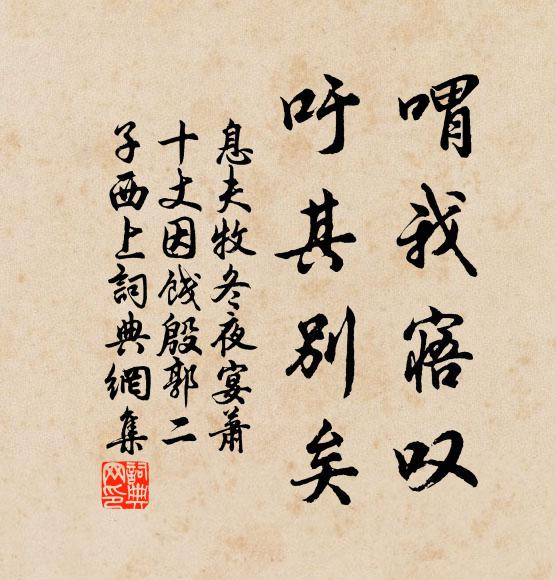 喟我寤叹
吁其别矣
息夫牧冬夜宴萧
十丈因饯殷郭二
子西上詞典網集
詞典網印